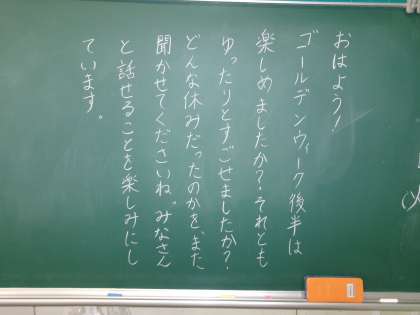 おはよう!
ゴールデンウィーク後半は
楽しめましたか?それとも
ゆったりとすごせましたか?
どんな休みだったのかを、また
聞かせてくださいね。みなさん
と話せることを楽しみにし
ています。